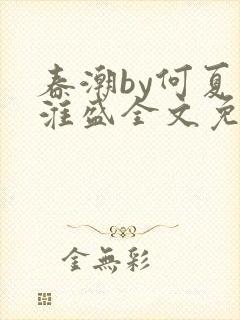 春潮by何夏
淮盛全文免
金無彩